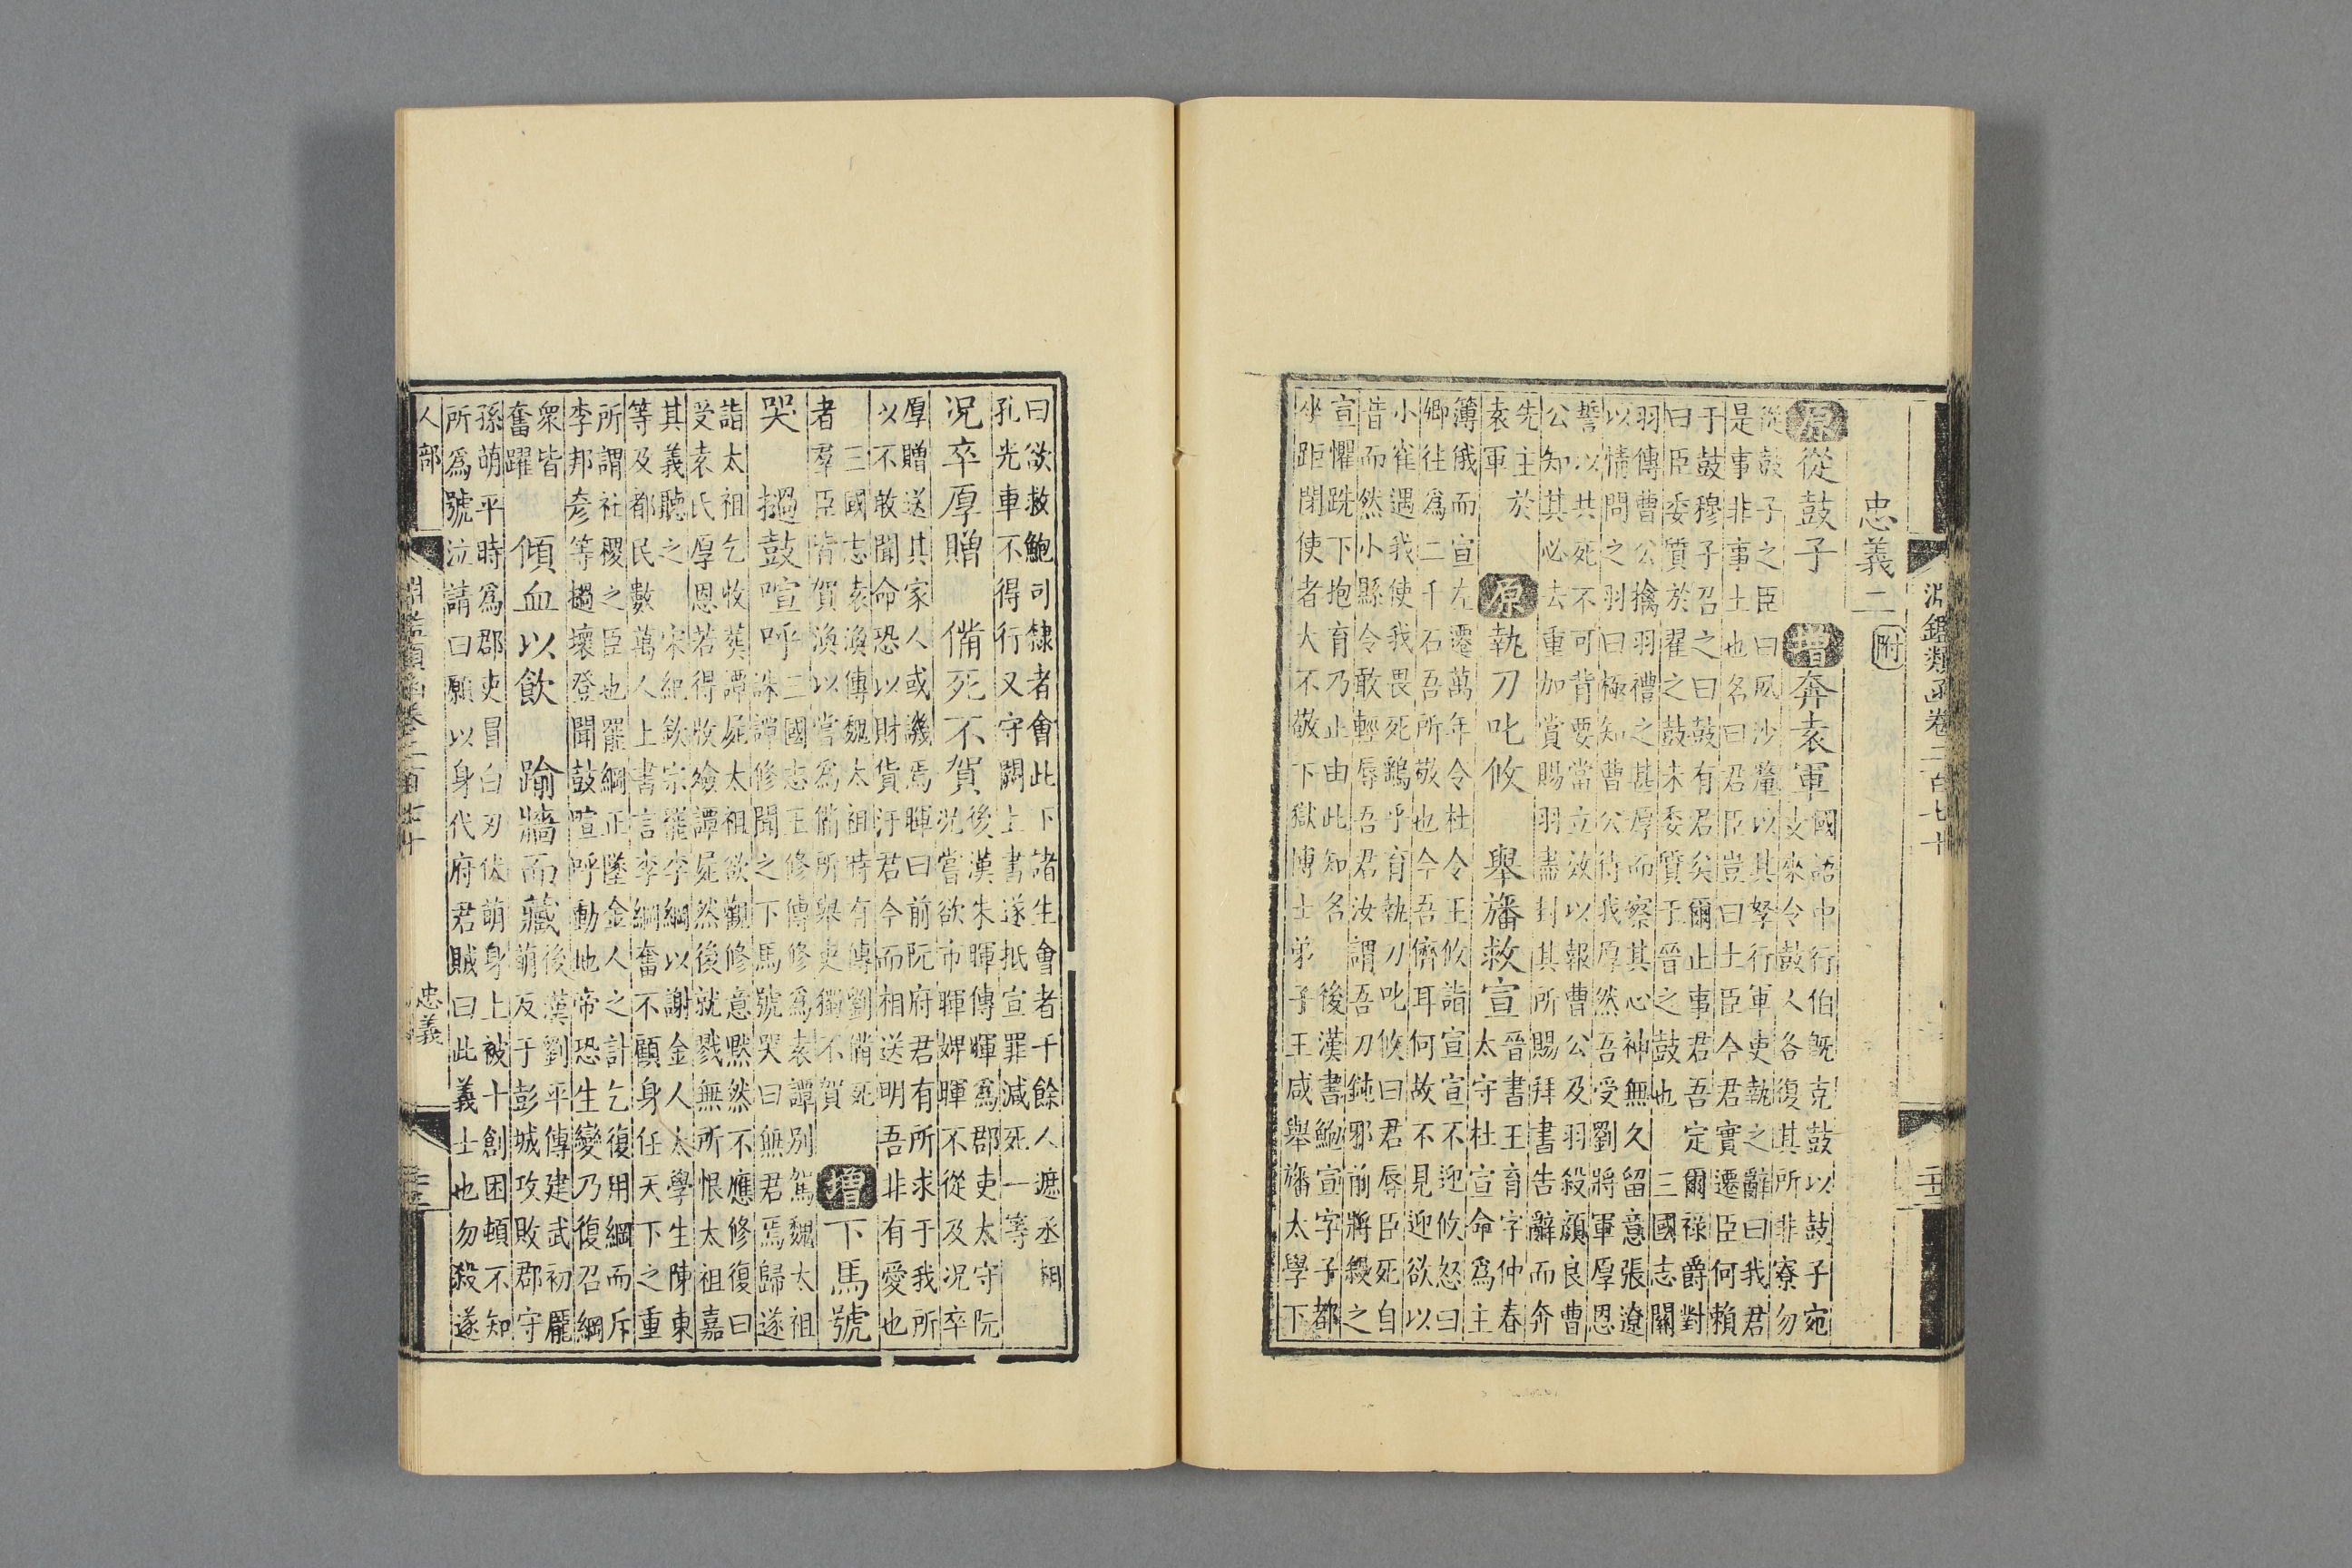 淵鑑類函卷二百七十
忠義二 附
原 從鼓子 增 奔袁軍 國語中行伯既克鼓以鼓子宛
支來令鼓人各復其所非寮勿
從鼓子之臣曰夙沙釐以其孥行軍吏執之辭曰我君
是事非事土也名曰君臣豈曰土臣今君實遷臣何賴
于鼓穆子召之曰鼓有君矣爾止事君吾定爾祿爵對
曰臣委質於翟之鼓未委質于晉之鼓也 三國志關
羽傳曹公擒羽禮之甚厚而察其心神無久留意張遼
以情問之羽曰極知曹公待我厚然吾受劉將軍厚恩
誓以共死不可背要當立效以報曹公及羽殺顔良曹
公知其必去重加賞賜羽盡封其所賜拜書告辭而奔
先主於
袁軍 原 執刀叱攸 舉旛救宣 晉書王育字仲春
太守杜宣命爲主
簿俄而宣左遷萬年令杜令王攸詣宣宣不迎攸怒曰
卿往爲二千石吾所敬也今吾儕耳何故不見迎欲以
小雀遇我使我畏死鷂乎育執刀叱攸曰君辱臣死自
昔而然小縣令敢輕辱吾君汝謂吾刀鈍邪前將殺之
宣懼跣下抱育乃止由此知名 後漢書鮑宣字子都
坐距閉使者大不敬下獄博士弟子王咸舉旛太學下
曰欲救鮑司隸者會此下諸生會者千餘人遮丞相
孔光車不得行又守闕上書遂抵宣罪減死一等
況卒厚贈 備死不賀 後漢朱暉傳暉爲郡吏太守阮
況嘗欲市暉婢暉不從及況卒
厚贈送其家人或譏焉暉曰前阮府君有所求于我所
以不敢聞命恐以財貨汙君今而相送明吾非有愛也
三國志袁渙傳魏太祖時有傳劉備死
者羣臣皆賀渙以嘗爲備所舉吏獨不賀 增 下馬號
哭 撾鼓喧呼 三國志王修傳修爲袁譚別駕魏太祖
誅譚修聞之下馬號哭曰無君焉歸遂
詣太祖乞收葬譚屍太祖欲觀修意默然不應修復曰
受袁氏厚恩若得收殮譚屍然後就戮無所恨太祖嘉
其義聽之 宋紀欽宗罷李綱以謝金人太學生陳東
等及都民數萬人上書言李綱奮不顧身任天下之重
所謂社稷之臣也罷綱正墮金人之計乞復用綱而斥
李邦彥等撾壞登聞鼓喧呼動地帝恐生變乃復召綱
衆皆
奮躍 傾血以飲 踰牆而藏 後漢劉平傳建武初龐
萌反于彭城攻敗郡守
孫萌平時爲郡吏冒白刃伏萌身上被十創困頓不知
所爲號泣請曰願以身代府君賊曰此義士也勿殺遂
人部 忠義